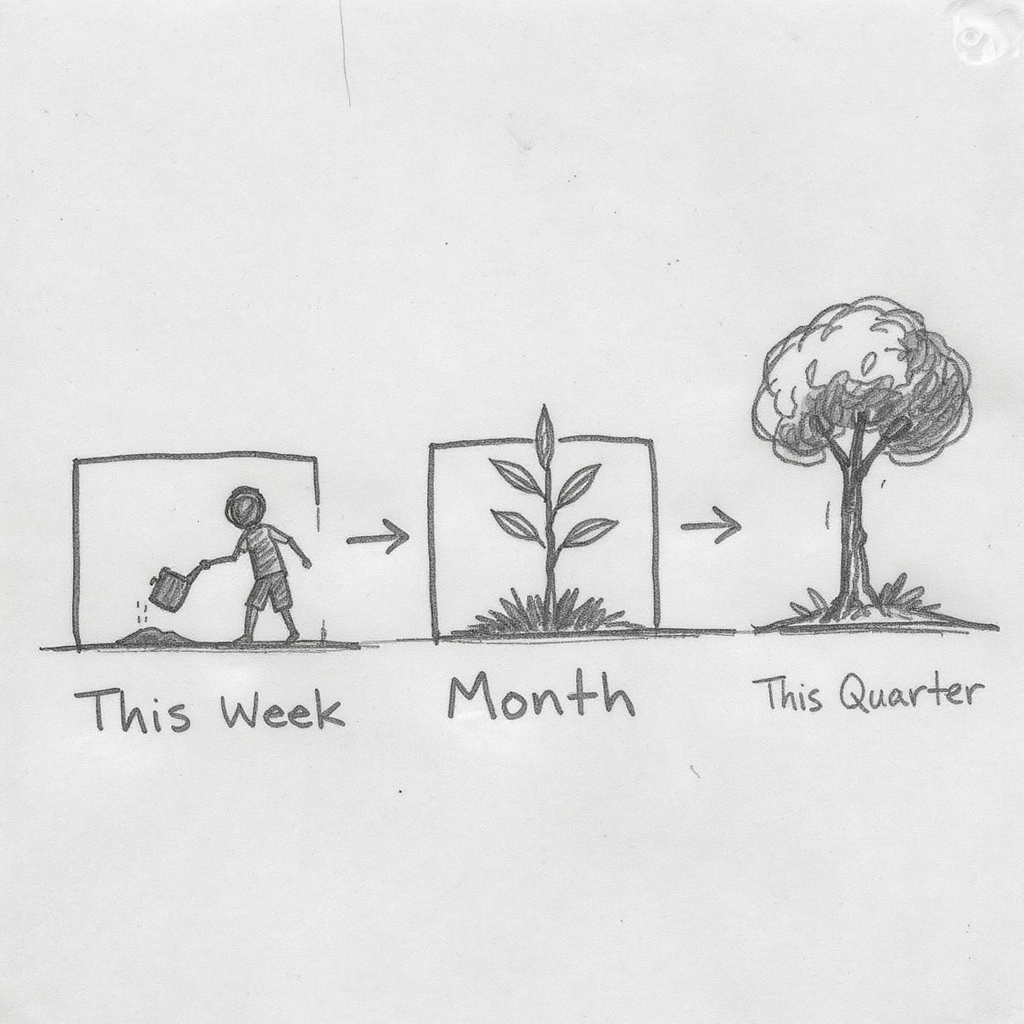 This Week
Month
This Quarter